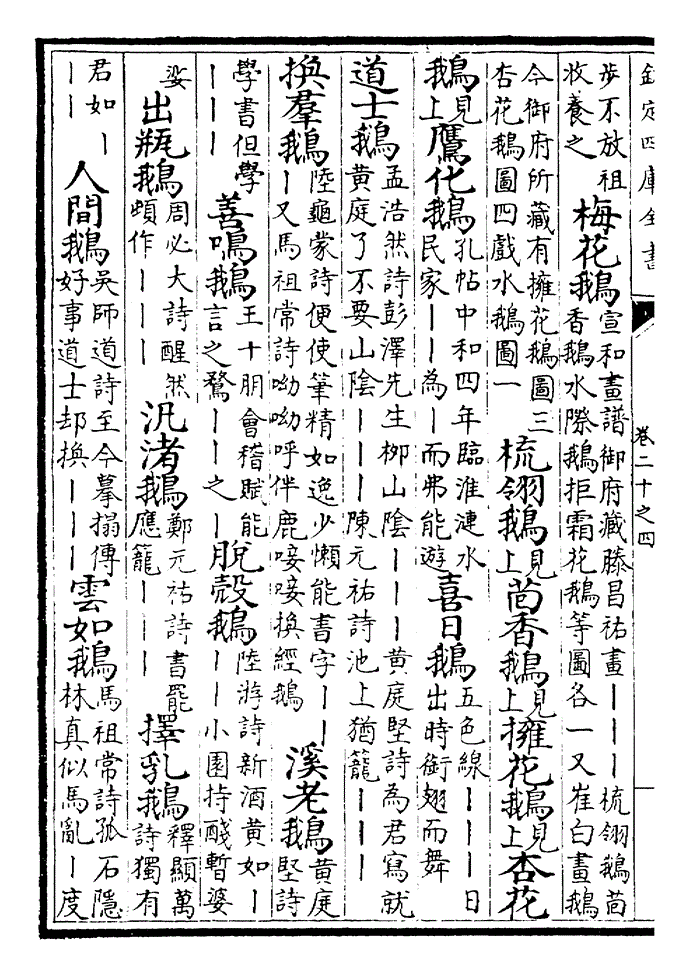 欽定四庫全書 卷二十之四
步不放祖牧養之 梅花鵝 宣和畫譜御府藏滕昌祐畫丨丨丨梳翎鵝茴香鵝水際鵝拒霜花鵝等圖各一又崔白畫鵝
今御府所藏有擁花鵝圖三杏花鵝圖四戲水鵝圖一 梳翎鵝 見上 茴香鵝 見上 擁花鵝 見上 杏花
鵝 見上 鷹化鵝 孔帖中和四年臨淮漣水民家丨丨為丨而弗能遊 喜日鵝 五色線丨丨丨日出時銜翅而舞
道士鵝 孟浩然詩彭澤先生栁山陰丨丨丨黃庭堅詩為君寫就黃庭了不要山陰丨丨丨陳元祐詩池上猶籠丨丨丨
換羣鵝 陸龜蒙詩便使筆精如逸少懶能書字丨丨丨又馬祖常詩呦呦呼伴鹿唼唼換經鵝 溪老鵝 黃庭堅詩
學書但學丨丨丨 善鳴鵝 王十朋會稽賦能言之鶩丨丨之丨 脫殼鵝 陸游詩新酒黃如丨丨丨小園持醆暫婆
娑 出瓶鵝 周必大詩醒然頓作丨丨丨 汎渚鵝 鄭元祐詩書罷應籠丨丨丨 擇乳鵝 釋顯萬詩獨有
君如丨丨丨 人間鵝 吳師道詩至今摹搨傳好事道士却換丨丨丨 雲如鵝 馬祖常詩孤石隱林真似馬亂丨度